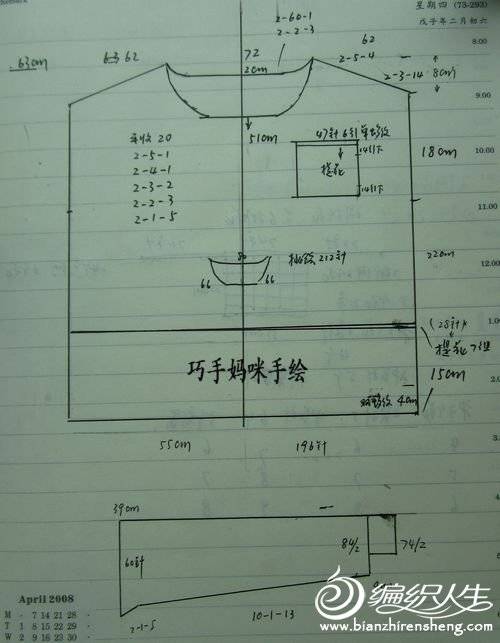 星期四 (73-293)
戊子年二月初六
8.00
9.00
10.00
11.00
12.00
1.00
2.0
63cm
63 62
72
2cm
2-60-1
2-2-3
62
2-5-4
2-3-14
8cm
51cm
平收 20
2-5-1
2-4-1
2-3-2
2-2-3
2-1-5
47针 6针单螺纹
14针下
提花
14针下
18cm
80
66
66
挑绘 212针
22cm
(28针)
提花7组
15cm
巧手妈咪手绘
双螺纹 4cm
55cm
196针
39cm
60针
84/2
74/2
2-1-5
10-1-13
April 2008
M - 7 14 21 28 -
T 1 8 15 22 29 -
W 2 9 16 23 30 -
编织人生
www.bianzhirensheng.com